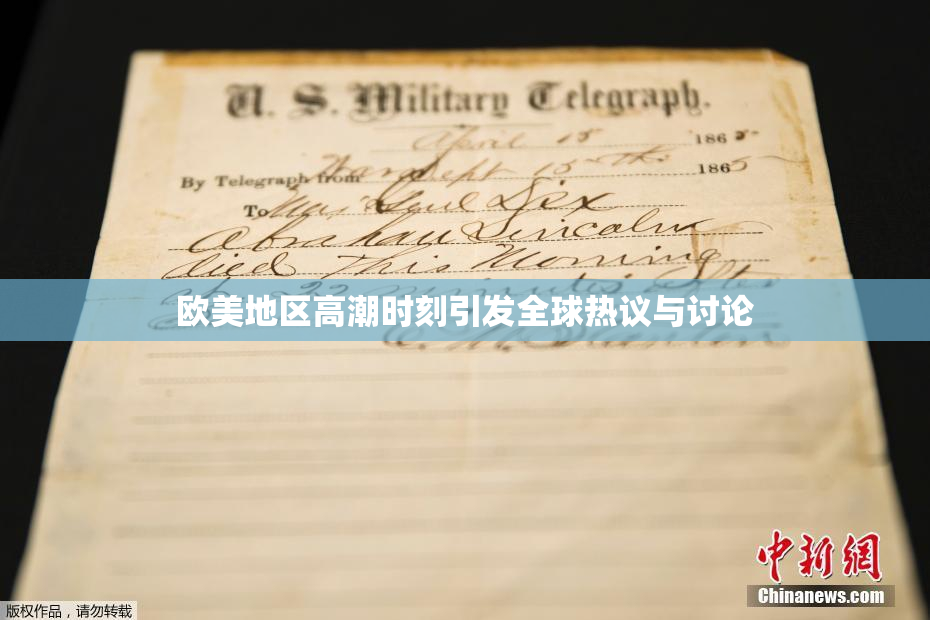 U. S. Military Telegraph.
April 15 1865
By Telegraph from War Dept 15th 1865
To Maj Genl Dix
Abraham Lincoln
died This Morning
at 22 minutes after
欧美地区高潮时刻引发全球热议与讨论
E. M. Stanton
中新网
Chinanews.com
版权作品,请勿转载